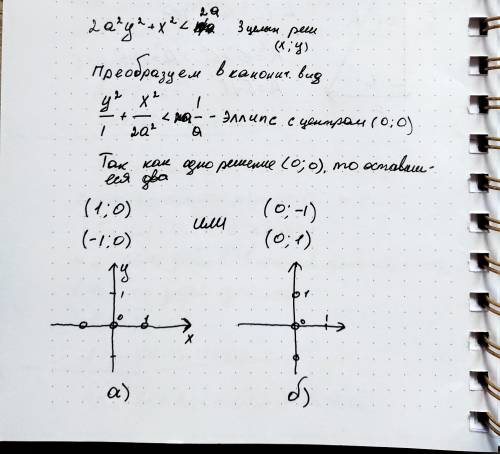 2a²y² + x² < 2a 3 целых реш
(x; y)
Преобразуем в канонич. вид
y²/1 + x²/2a² < 1/a - эллипс с центром (0; 0)
Так как одно решение (0; 0), то оставши-
еся два
(1; 0) (0; -1)
или
(-1; 0) (0; 1)
y
1 1
0 1 0 1
x
а) б)